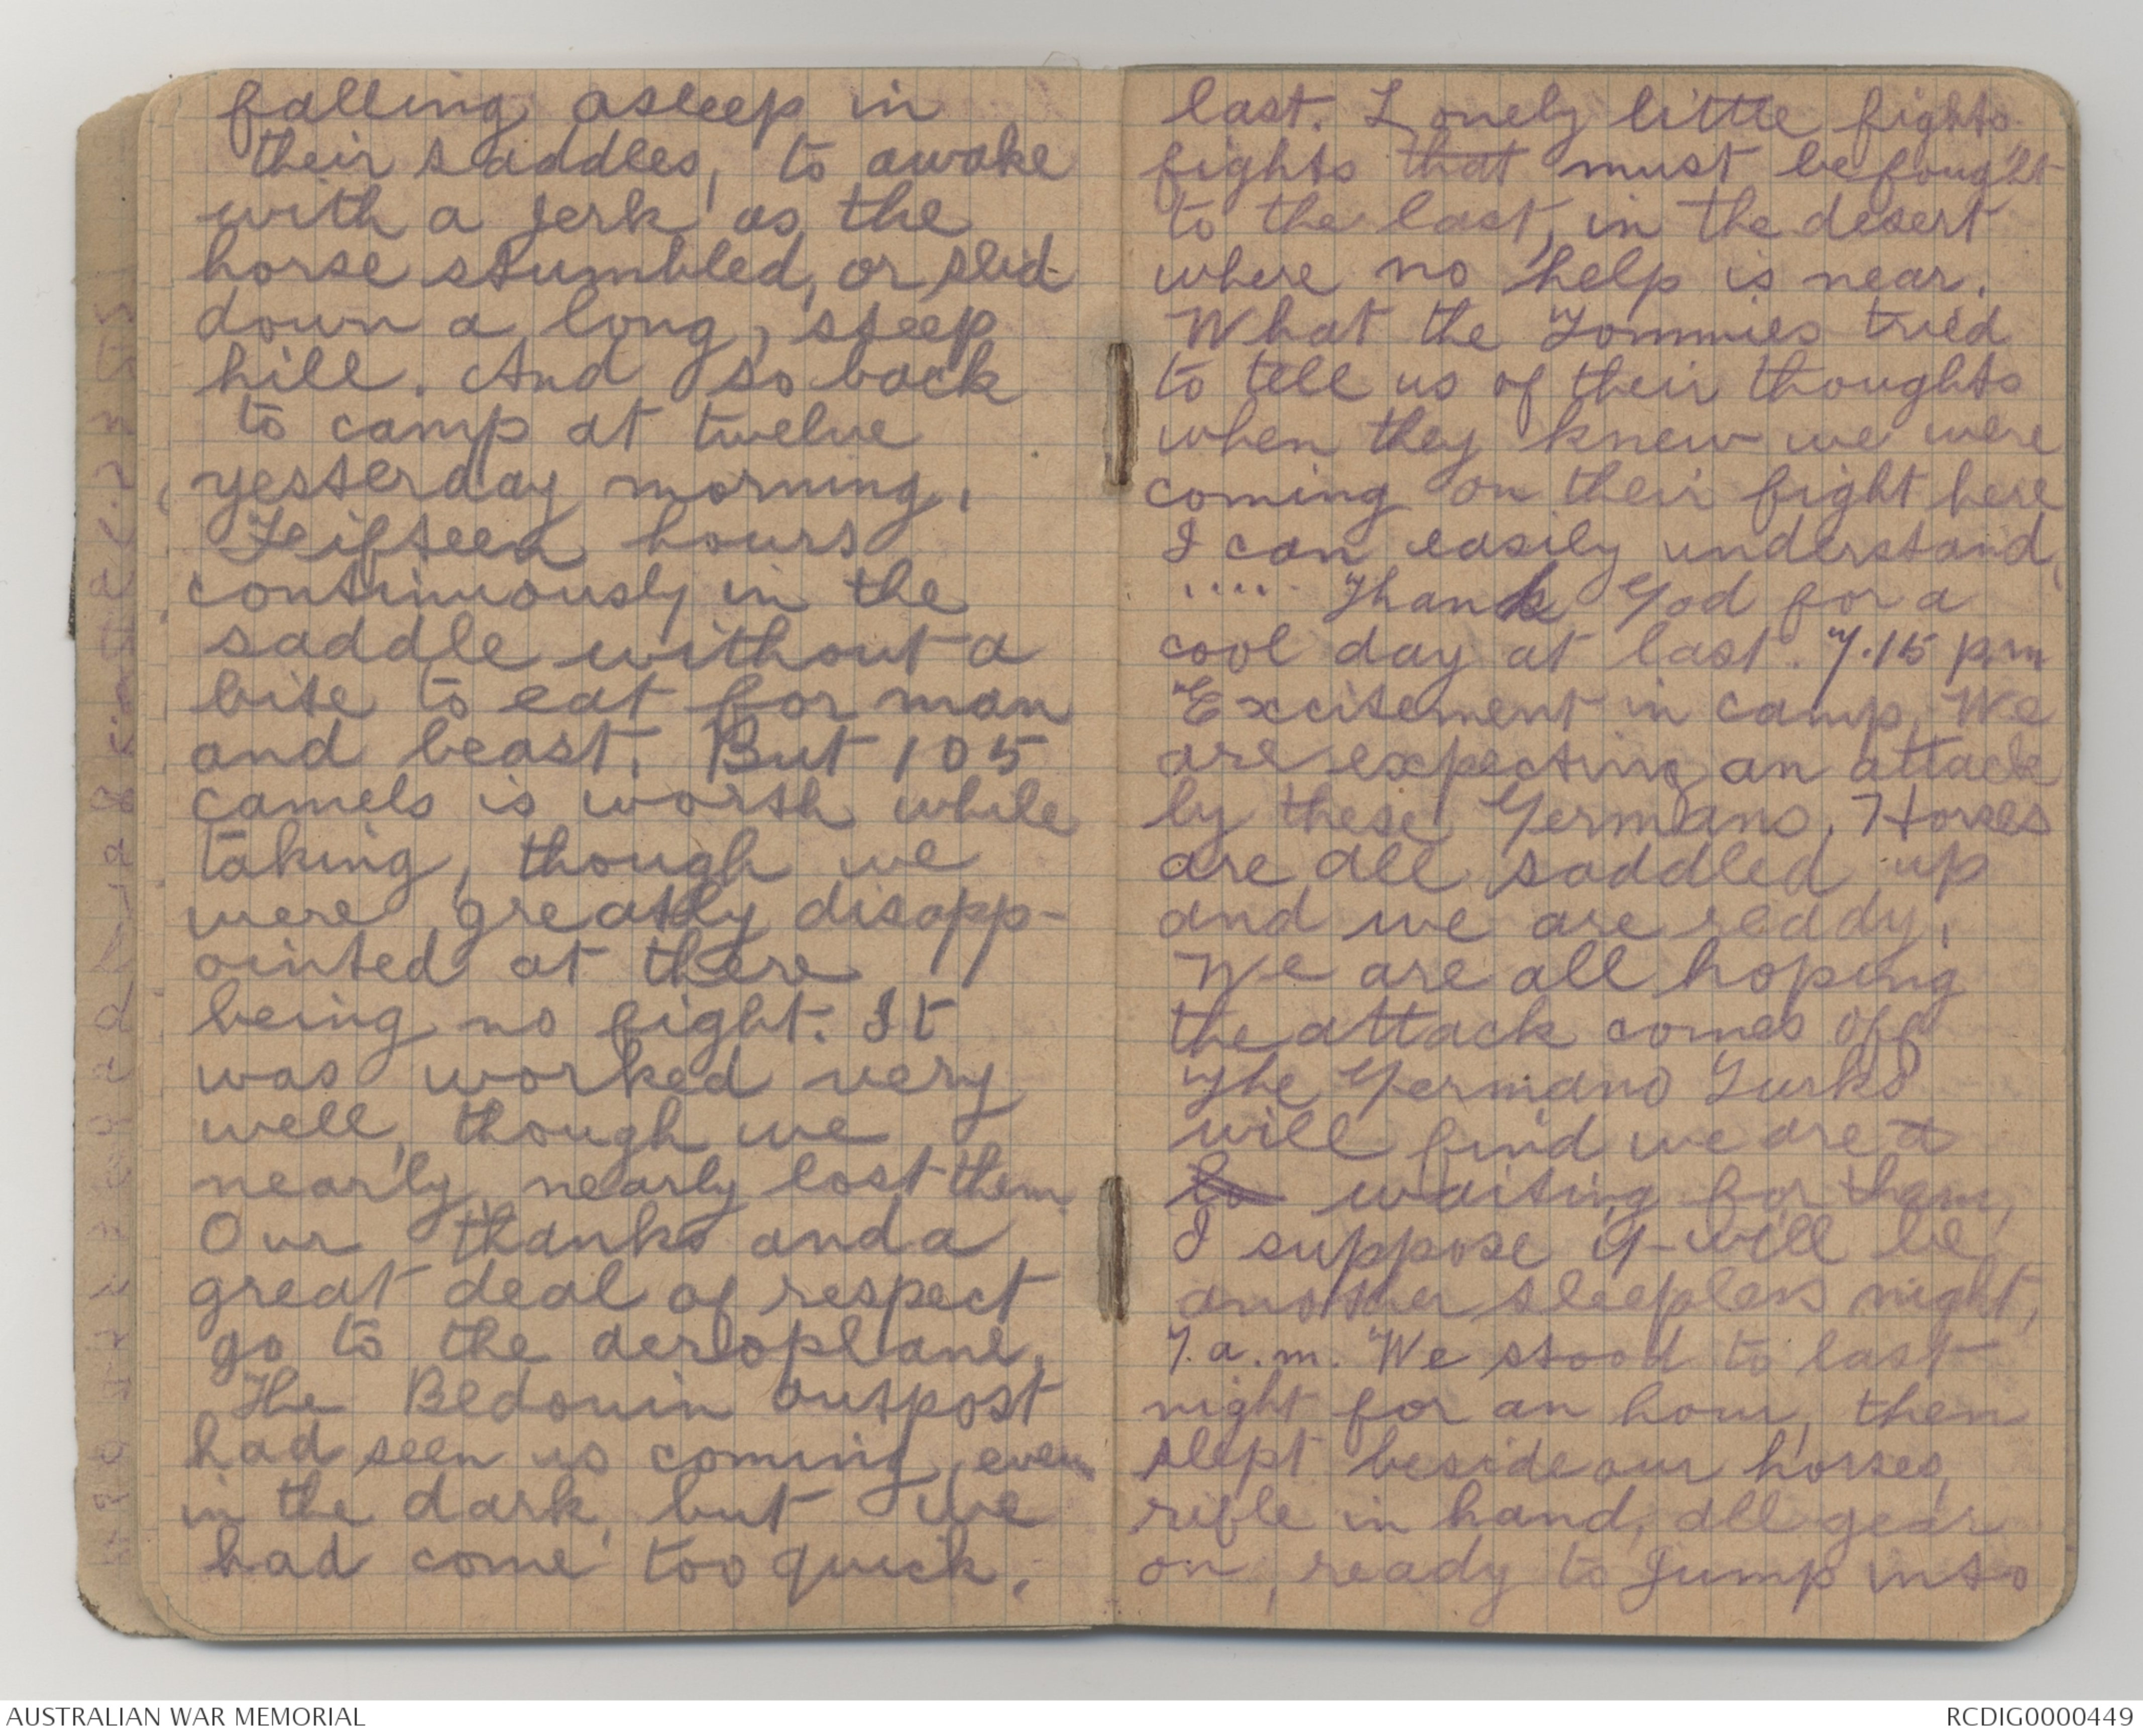 falling asleep in
their saddles, to awake
with a jerk as the
horse stumbled, or slid
down a long, steep
hill. And so back
to camp at twelve
yesterday morning.
Fifteen hours
continuously in the
saddle without a
bite to eat for man
and beast. But 105
camels is worth while
taking, though we
were greatly disapp-
ointed at there
being no fight. It
was worked very
well, though we
nearly, nearly lost them
Our thanks and a
great deal of respect
go to the aeroplane.
The Bedouin outpost
had seen us coming, even
in the dark, but we
had come too quick.
last. Lonely little fights
fights that must be fought
to the last, in the desert
where no help is near.
What the Tommies tried
to tell us of their thoughts
when they knew we were
coming on their fight here
I can easily understand,
..... Thank God for a
cool day at last. 7.15 p.m
Excitement in camp. We
are expecting an attack
by these Germans. Horses
are all saddled up
and we are ready.
We are all hoping
the attack comes off
The Germans Turks
will find we are a
to waiting for them,
I suppose it will be
another sleepless night,
7.a.m. We stood to last
night for an hour, then
slept beside our horses,
rifle in hand, all gear
on, ready to jump into
AUSTRALIAN WAR MEMORIAL
RCDIG0000449